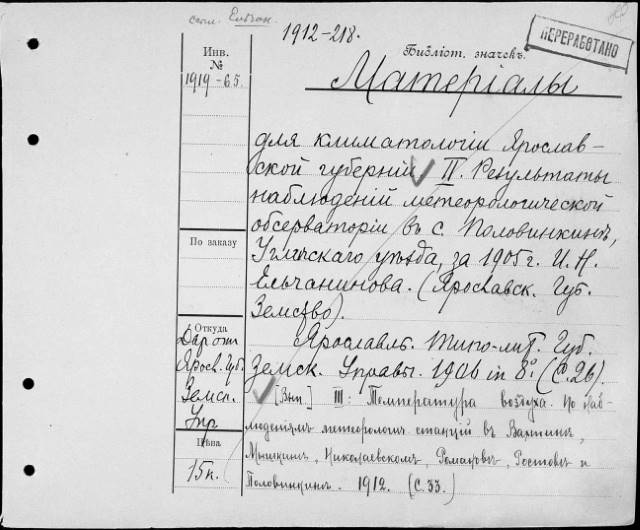 см. Ельчан.
1912-218.
ПЕРЕРАБОТАНО
Инв.
№
1919-65.
Библіот. значекъ.
Матеріалы
для климатологіи Ярослав-
ской губерніи II. Результаты
наблюденій метеорологической
обсерваторіи въ с. Половинкинѣ,
Угличскаго уѣзда, за 1905 г. И. Н.
Ельчанинова. (Ярославск. Губ.
Земство).
По заказу
Откуда
Даромъ
Яросл. Губ.
Земск.
Упр
Цѣна
15 к.
Ярославль. Типо-лит. Губ.
Земск. Управы. 1906 in 8° (С. 26).
[Вып.] III: Температура воздуха. По наб-
людениямъ метеоролог. станцій въ Вахтинѣ,
Мышкинѣ, Николаевскомъ, Романовѣ, Ростовѣ и
Половинкинѣ. 1912. (С. 33.)